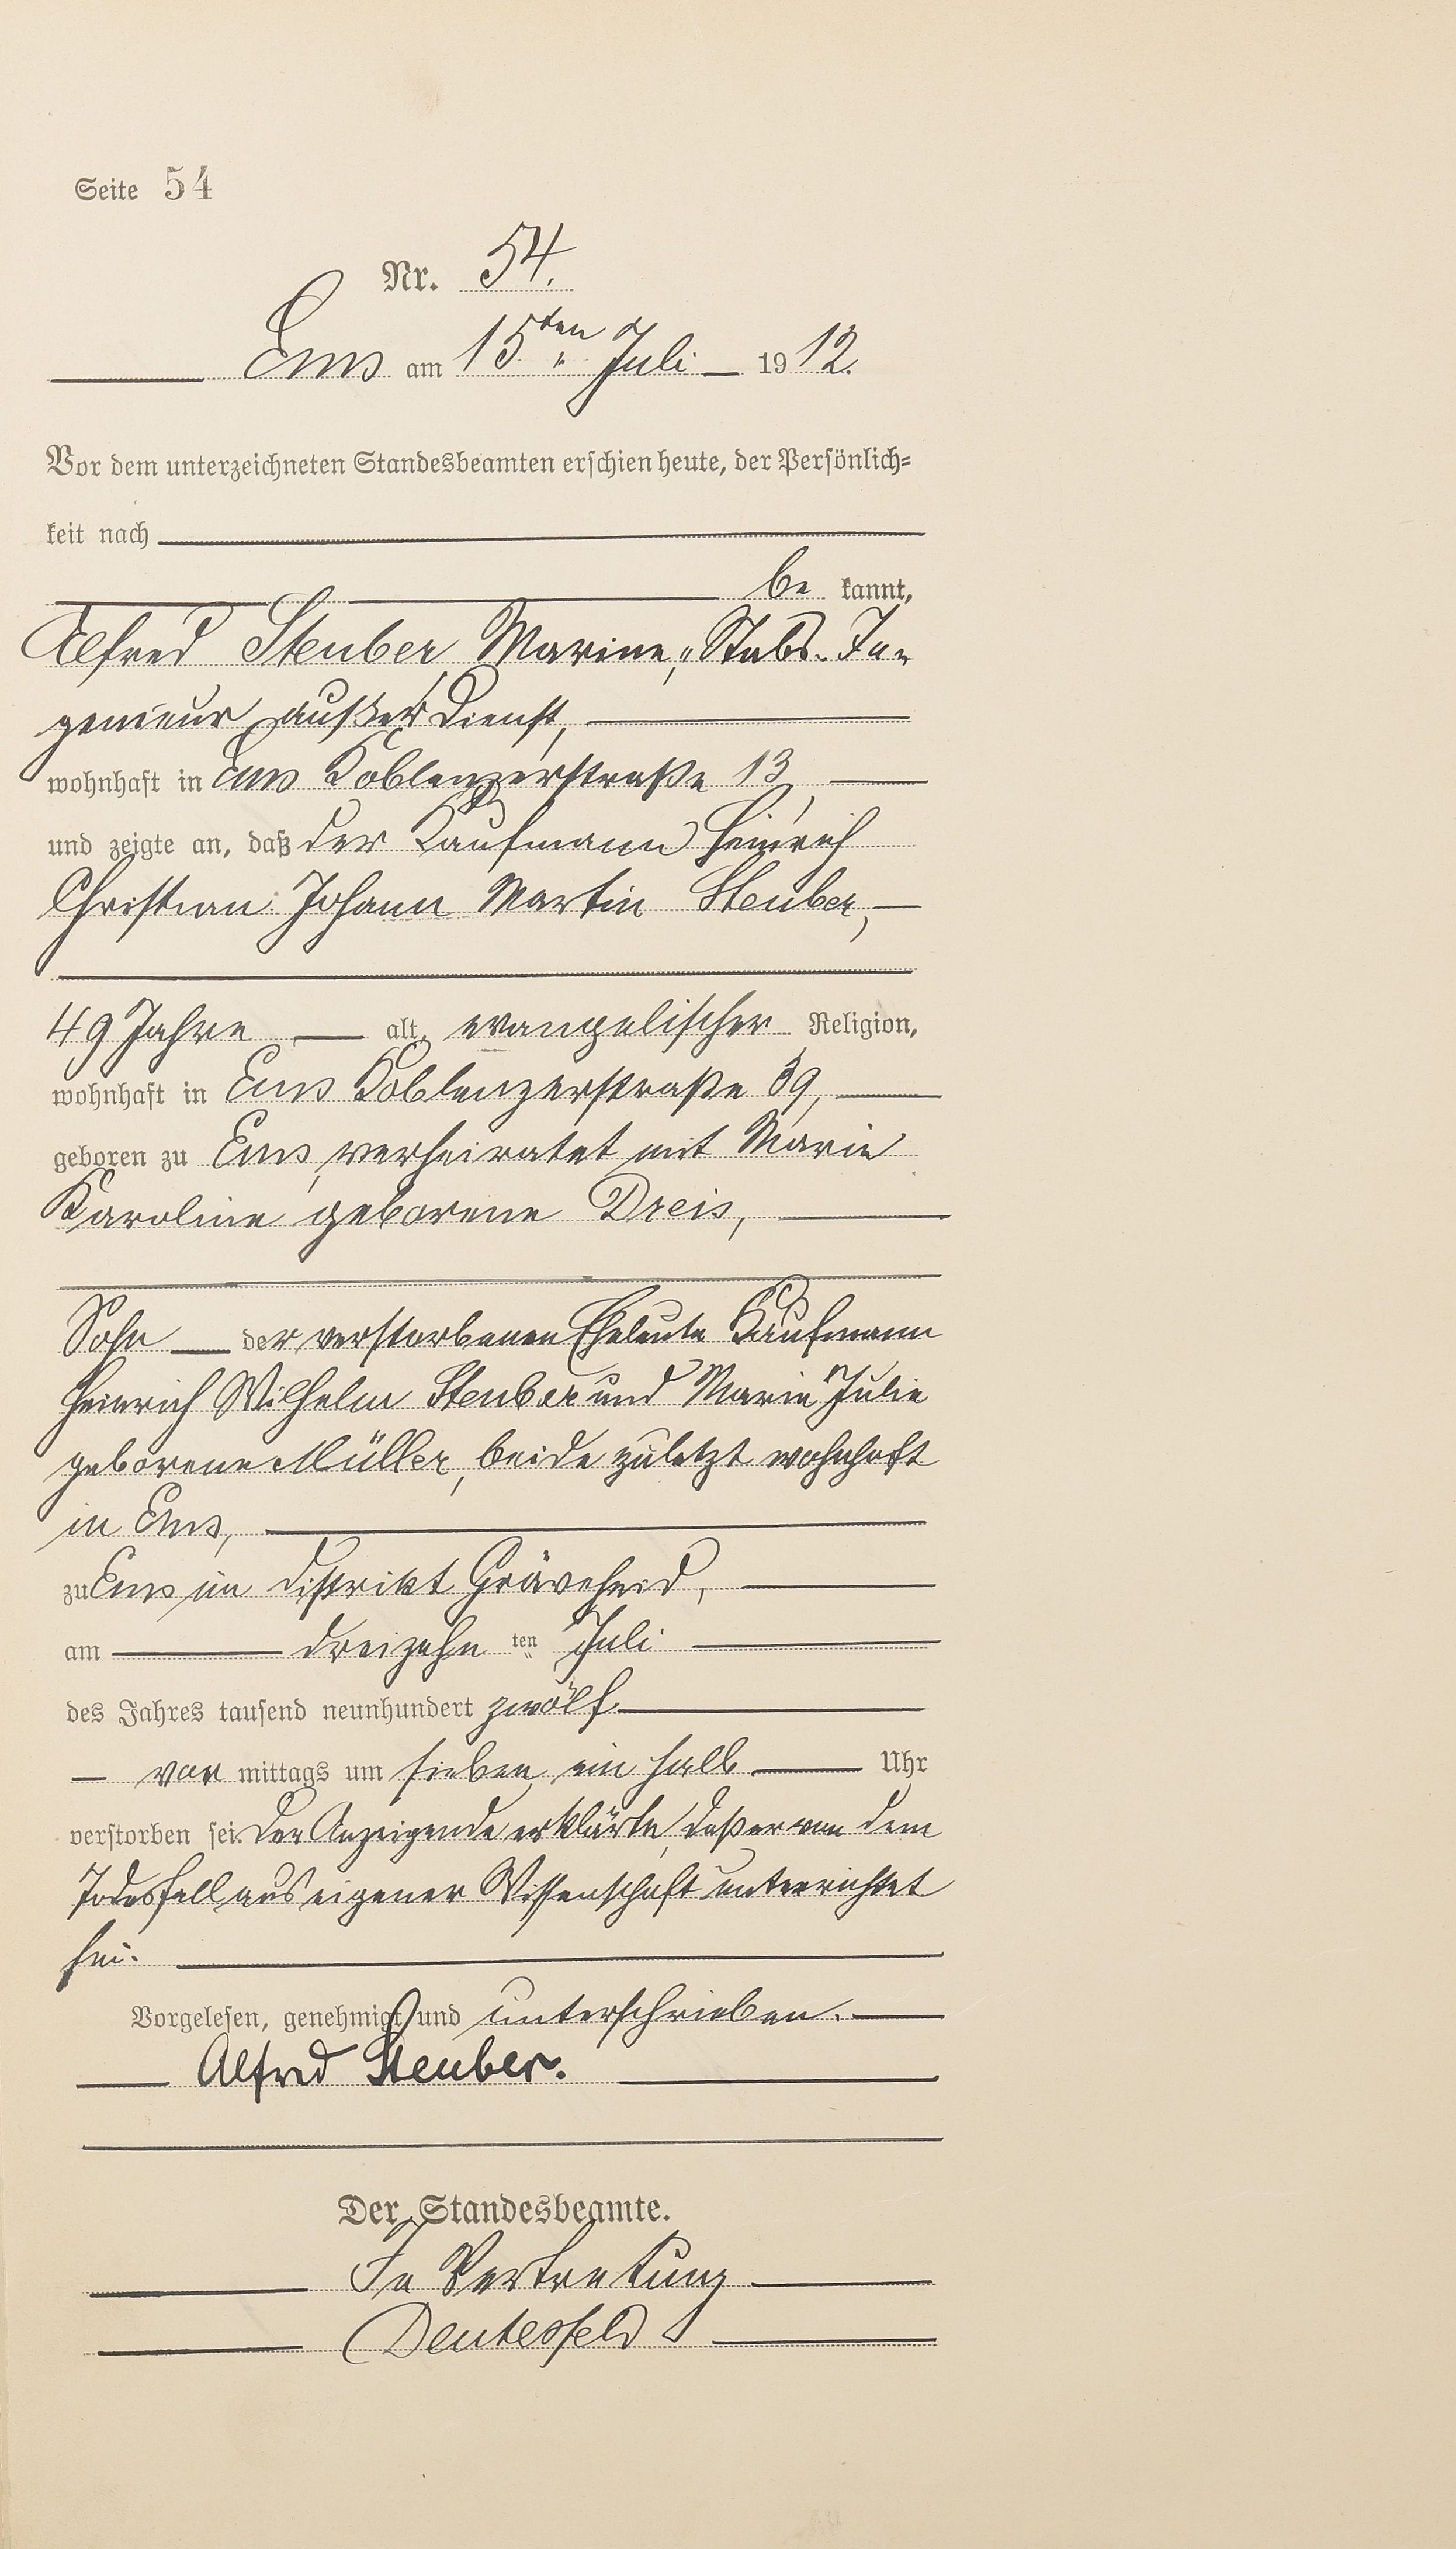 Seite 54
Nr. 54.
Ems am 15ten Juli 1912.
Vor dem unterzeichneten Standesbeamten erschien heute, der Persönlich=
keit nach
be kannt,
Alfred Steuber, Marine-Stabs-In-
genieur außer Dienst,
wohnhaft in Ems Koblenzerstraße 13,
und zeigte an, daß der Kaufmann Heinrich
Christian Johann Martin Steuber,
49 Jahre alt, evangelischer Religion,
wohnhaft in Ems Koblenzerstraße 39,
geboren zu Ems, verheiratet mit Marie
Karoline geborene Dreis,
Sohn der verstorbenen Eheleute Kaufmann
Heinrich Wilhelm Steuber und Marie Julie
geborene Müller, beide zuletzt wohnhaft
in Ems,
zu Ems im Distrikt
am dreizehn ten Juli
des Jahres tausend neunhundert zwölf
vor mittags um sieben ein halb Uhr
verstorben sei. Der Anzeigende erklärte, daß er von dem
Todesfall aus eigener Wissenschaft unterrichtet
sei.
Vorgelesen, genehmigt und unterschrieben.
Alfred Steuber.
Der Standesbeamte.
In Vertretung